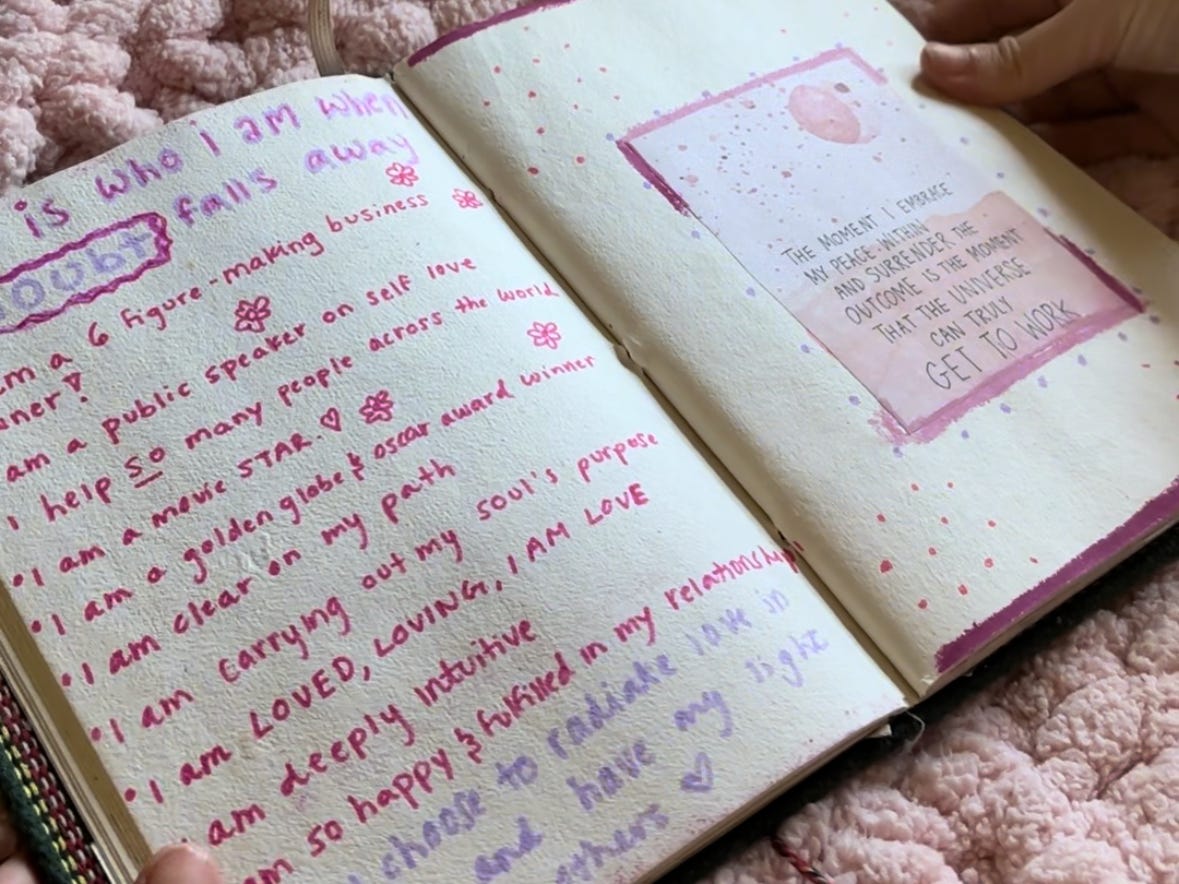 is who I am when
falls away
am a 6 figure-making business
am a public speaker on self love
I help so many people across the world
• I am a movie STAR. ♡
• I am a golden globe & oscar award winner
• I am clear on my path
• I am carrying out my soul's purpose
• I am LOVED, LOVING, I AM LOVE
am deeply intuitive
am so happy & fulfilled in my relationship
choose to radiate love in
and have my light
others ♡
THE MOMENT I EMBRACE
MY PEACE WITHIN
AND SURRENDER THE
OUTCOME IS THE MOMENT
THAT THE UNIVERSE
CAN TRULY
GET TO WORK